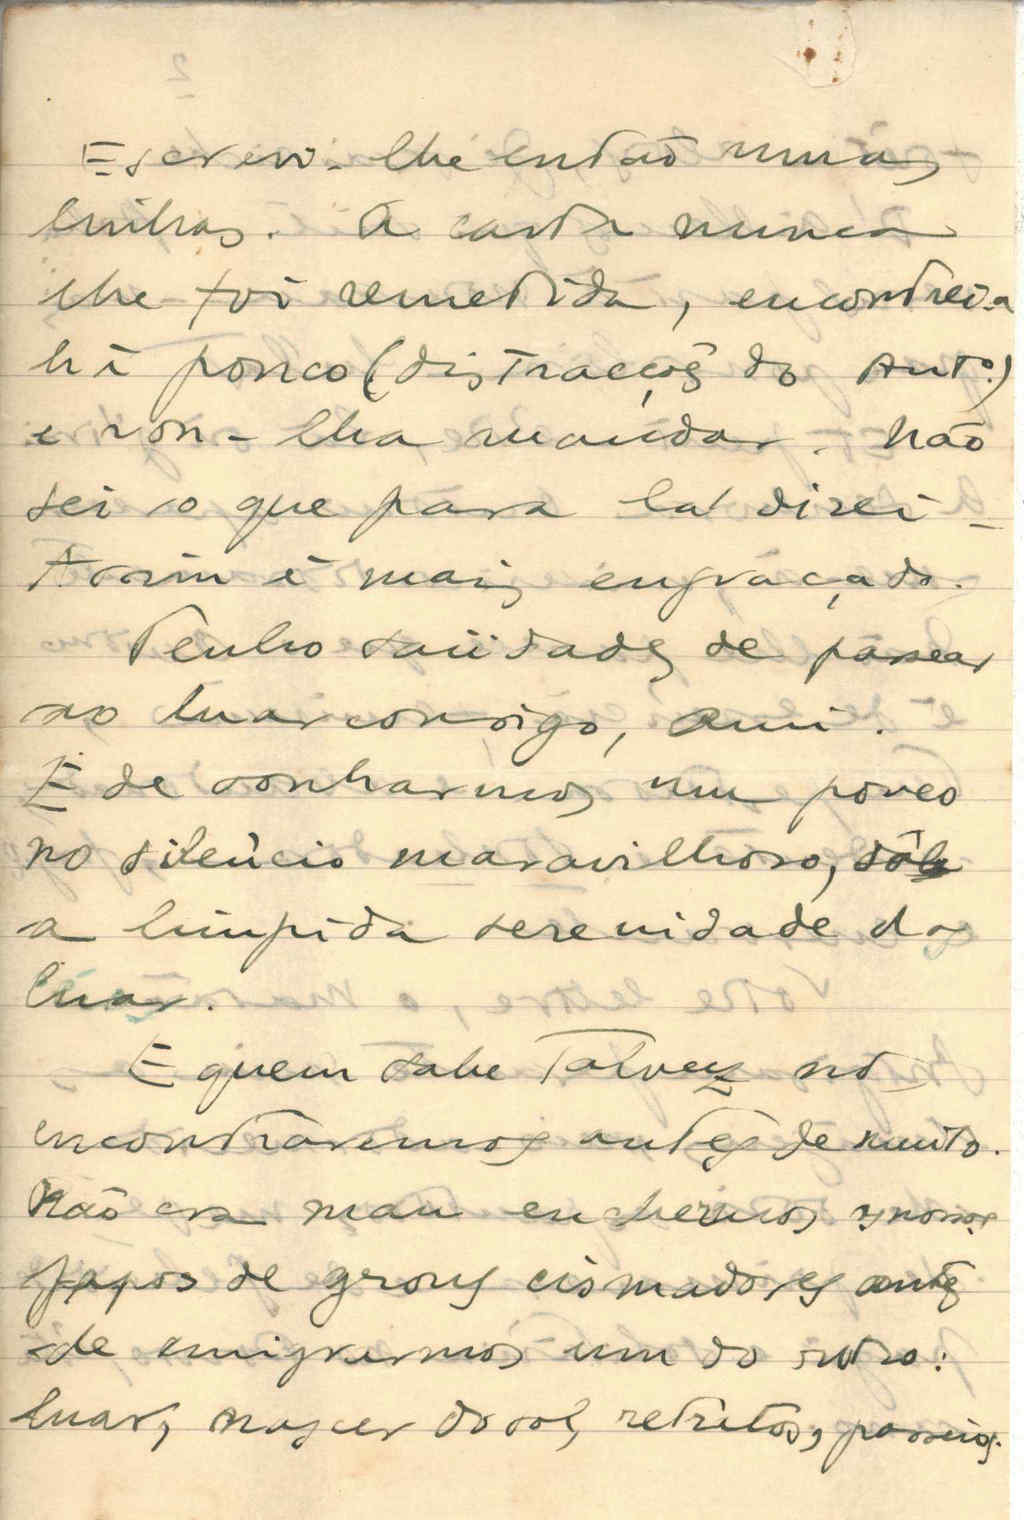 Escrevi-lhe então umas
linhas. A carta nunca
lhe foi remetida, encontrei-a
há pouco (distracções do Antº.)
e vou-lha mandar. Não
sei o que para lá direi –
Assim é mais engraçado.
Tenho saüdades de passear
ao luar consigo, Ami.
E de sonharmos um pouco
no silêncio maravilhoso, sôb
a límpida serenidade do
luar.
E quem sabe talvez nos
encontraremos antes de muito.
Não era mau enchermos os nossos
papos de grous cismadores antes
de emigrarmos um do outro:
luar, nascer do sol, retratos, passeios.